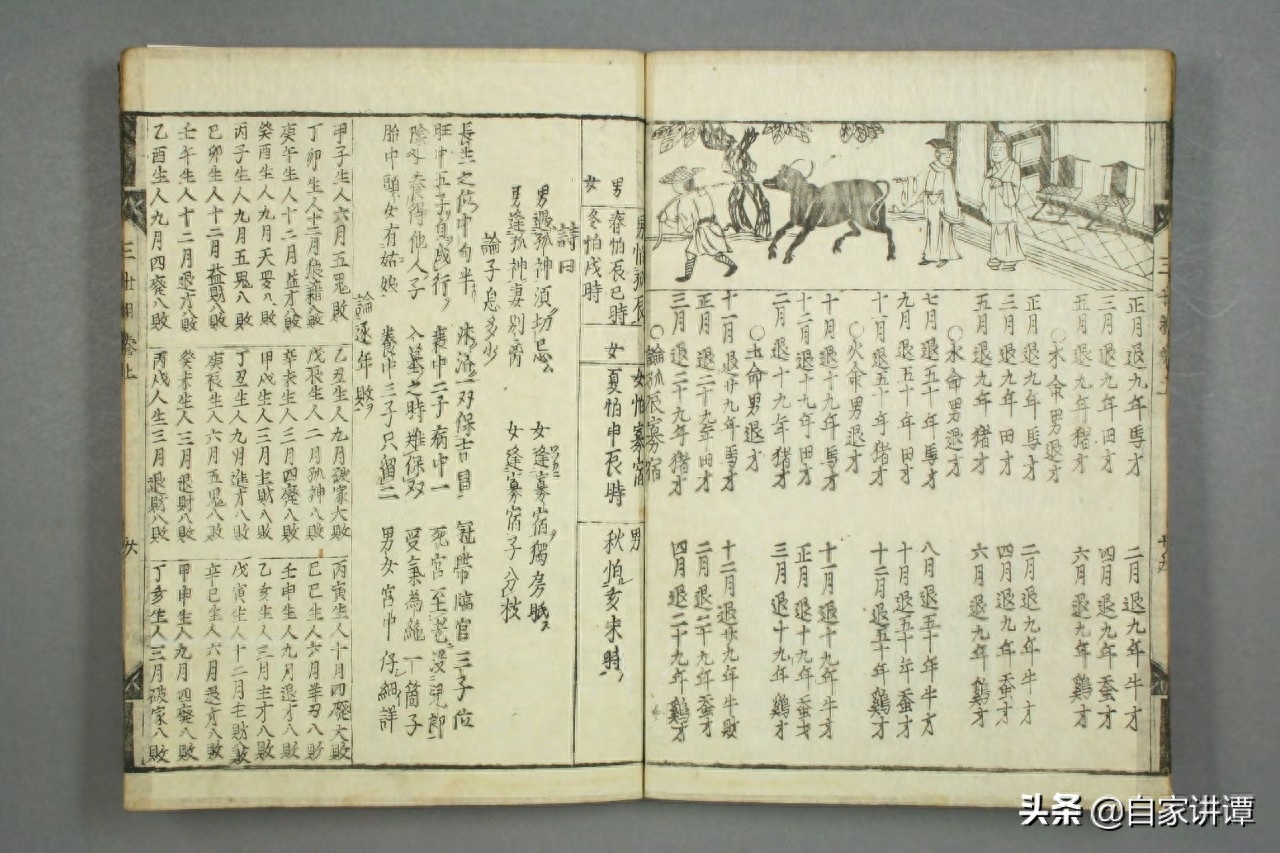 正月退九年馬才 二月退九年牛才
三月退九年田才 四月退九年蚕才
五月退九年猪才 六月退九年鷄才
○木命男退才
正月退九年馬才 二月退九年牛才
三月退九年田才 四月退九年蚕才
五月退九年猪才 六月退九年鷄才
○水命男退才
七月退五十年馬才 八月退五十年牛才
九月退五十年田才 十月退五十年蚕才
十一月退五十年猪才 十二月退五十年鷄才
○火命男退才
十月退十九年馬才 十一月退十九年牛才
十二月退十九年田才 正月退十九年蚕才
二月退十九年猪才 三月退十九年鷄才
○土命男退才
十一月退廿九年馬才 十二月退廿九年牛敗
正月退二十九年田才 二月退二十九年蚕才
三月退二十九年猪才 四月退二十九年鷄才
○論孤辰寡宿
男怕孤辰 女怕寡宿
男 春怕辰巳時 女 夏怕申辰時 男 秋怕亥未時
女 冬怕戌時
詩曰
男遇孤神須切忌 女逢寡宿獨房眠
男逢孤神妻別嘗 女逢寡宿子分枝
論子息多少
長生之位中旬半 沐浴一双保吉昌 冠帶臨官三子位
旺中五子自成行 衰中二子病中一 死宮至老没児郎
除非養得他人子 入墓之時難保双 受氣為絶一箇子
胎中頭女有姑娘 養中三子只留二 男女宮中仔細詳
論逐年敗
甲子生人六月五鬼敗 乙丑生人九月破家大敗 丙寅生人十月四廃大敗
丁卯生人十二月狼藉八敗 戊辰生人二月孤神八敗 巳巳生人六月羊刃八敗
庚午生人十二月益才八敗 辛未生人三月四廃八敗 壬申生人九月退才八敗
癸酉生人九月天罡八敗 甲戌生人三月主財八敗 乙亥生人三月主才八敗
丙子生人九月五鬼八敗 丁丑生人九月進才八敗 戊寅生人十二月主財八敗
巳卯生人十二月益財八敗 庚辰生人六月五鬼八敗 辛巳生人六月退才八敗
壬午生人十二月退才八敗 癸未生人三月退財八敗 甲申生人九月四廃八敗
乙酉生人九月四廃八敗 丙戌人生三月退財八敗 丁亥生人三月破家八敗
三世相卷上
头条 @自家讲谭